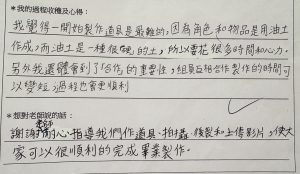 *我的過程收穫及心得:
我覺得一開始製作道具是最難的,因為角色和物品是用油土
作成,而油土是一種很硬的土,所以要花很多時間和心力。
另外我還體會到了「合作」的重要性,組員互相合作製作的時間可
以變短,過程也會更順利
*想對老師說的話:
謝謝老師耐心指導我們作道具、拍攝、後製和上傳影片,使大
家可以很順利的完成畢業製作。